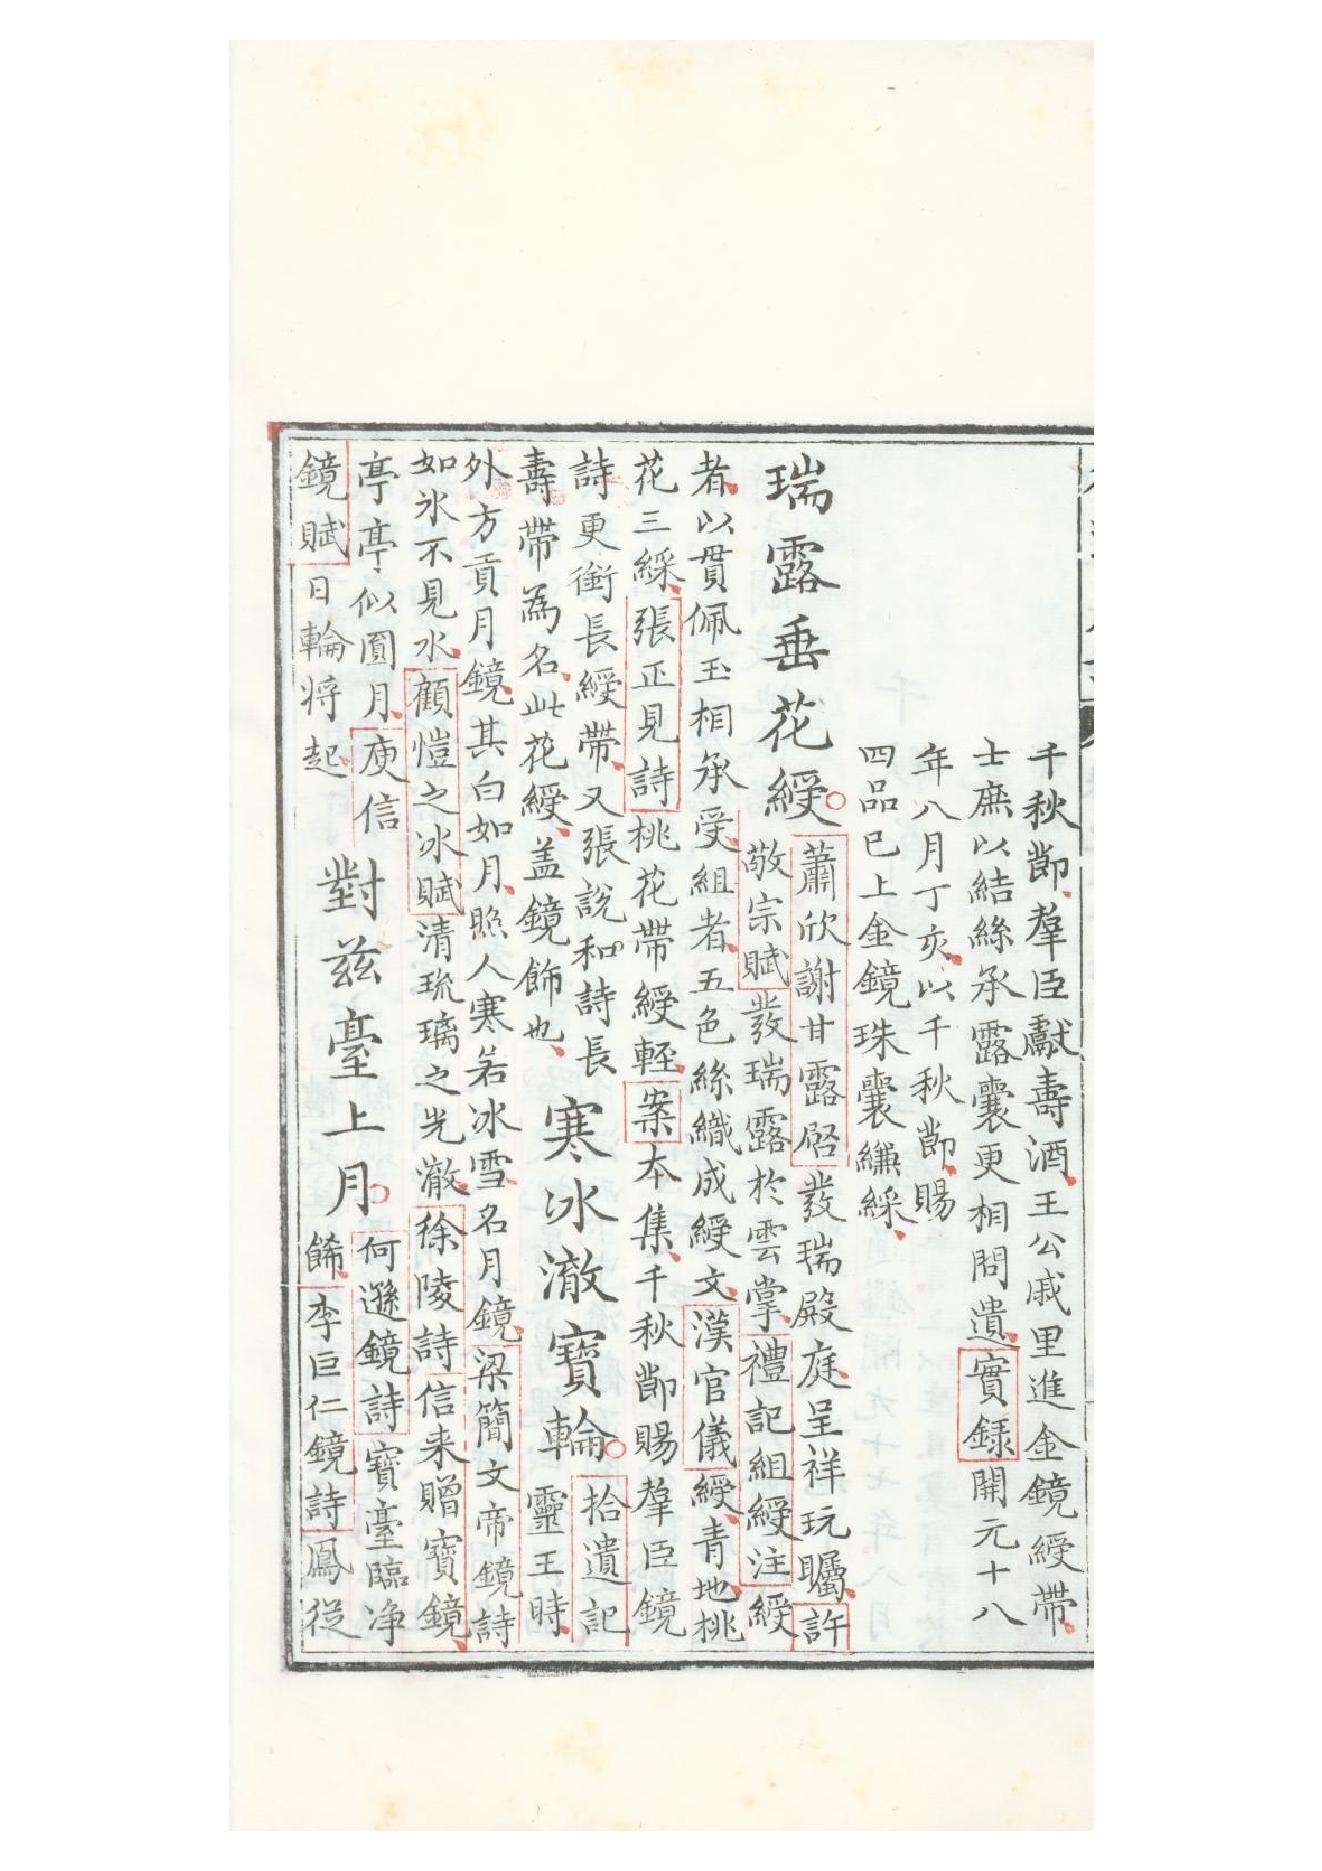 千秋節羣臣獻壽酒王公戚里進金鏡綬帶
士庶以結絲承露囊更相問遺實録開元十八
年八月丁亥以千秋節賜
四品已上金鏡珠囊縑綵
瑞露垂花綬
蕭欣謝甘露啓發瑞殿庭呈祥玩矚許
敬宗賦發瑞露於雲掌禮記組綬注綬
者以貫佩玉相承受組者五色絲織成綬文漢官儀綬青地桃
花三綵張正見詩桃花帶綬輕案本集千秋節賜羣臣鏡
詩更銜長綬帶又張說和詩長
壽帶為名此花綬盖鏡飾也
寒冰澈寶輪
拾遺記
靈王時
外方貢月鏡其白如月照人寒若冰雪名月鏡梁簡文帝鏡詩
如氷不見水顧愷之冰賦清琉璃之光澈徐陵詩信来贈寶鏡
亭亭似圓月庾信
鏡賦日輪将起
對兹臺上月
何遜鏡詩寶臺臨净
餙李巨仁鏡詩鳳從